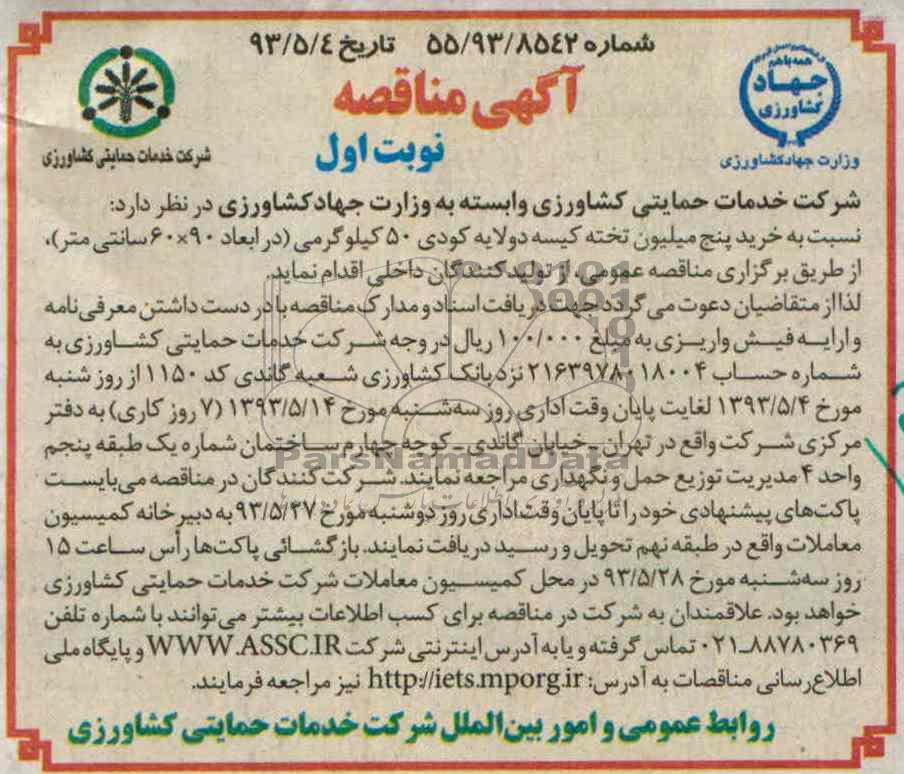 شماره ۵۵/۹۳/۸۵۴۲ تاریخ ۹۳/۵/۴
همه با هم
جهاد
کشاورزی
وزارت جهادکشاورزی
آگهی مناقصه
نوبت اول
شرکت خدمات حمایتی کشاورزی
شرکت خدمات حمایتی کشاورزی وابسته به وزارت جهادکشاورزی در نظر دارد:
نسبت به خرید پنج میلیون تخته کیسه دولایه کودی ۵۰ کیلوگرمی (در ابعاد ۹۰×۶۰ سانتی متر)،
از طریق برگزاری مناقصه عمومی، از تولیدکنندگان داخلی اقدام نماید.
لذا از متقاضیان دعوت می گردد جهت دریافت اسناد و مدارک مناقصه با در دست داشتن معرفی نامه
و ارایه فیش واریزی به مبلغ ۱۰۰/۰۰۰ ریال در وجه شرکت خدمات حمایتی کشاورزی به
شماره حساب ۲۱۶۳۹۷۸۰۱۸۰۰۴ نزد بانک کشاورزی شعبه گاندی کد ۱۱۵۰ از روز شنبه
مورخ ۱۳۹۳/۵/۴ لغایت پایان وقت اداری روز سه‌شنبه مورخ ۱۳۹۳/۵/۱۴ (۷ روز کاری) به دفتر
مرکزی شرکت واقع در تهران ـ خیابان گاندی ـ کوچه چهارم ساختمان شماره یک طبقه پنجم
واحد ۴ مدیریت توزیع حمل و نگهداری مراجعه نمایند. شرکت کنندگان در مناقصه می‌بایست
پاکت‌های پیشنهادی خود را تا پایان وقت اداری روز دوشنبه مورخ ۹۳/۵/۲۷ به دبیرخانه کمیسیون
معاملات واقع در طبقه نهم تحویل و رسید دریافت نمایند. بازگشائی پاکت‌ها رأس ساعت ۱۵
روز سه‌شنبه مورخ ۹۳/۵/۲۸ در محل کمیسیون معاملات شرکت خدمات حمایتی کشاورزی
خواهد بود. علاقمندان به شرکت در مناقصه برای کسب اطلاعات بیشتر می‌توانند با شماره تلفن
۰۲۱ـ۸۸۷۸۰۳۶۹ تماس گرفته و یا به آدرس اینترنتی شرکت WWW.ASSC.IR و پایگاه ملی
اطلاع‌رسانی مناقصات به آدرس: http://iets.mporg.ir نیز مراجعه فرمایند.
روابط عمومی و امور بین‌الملل شرکت خدمات حمایتی کشاورزی
ParsNamadData